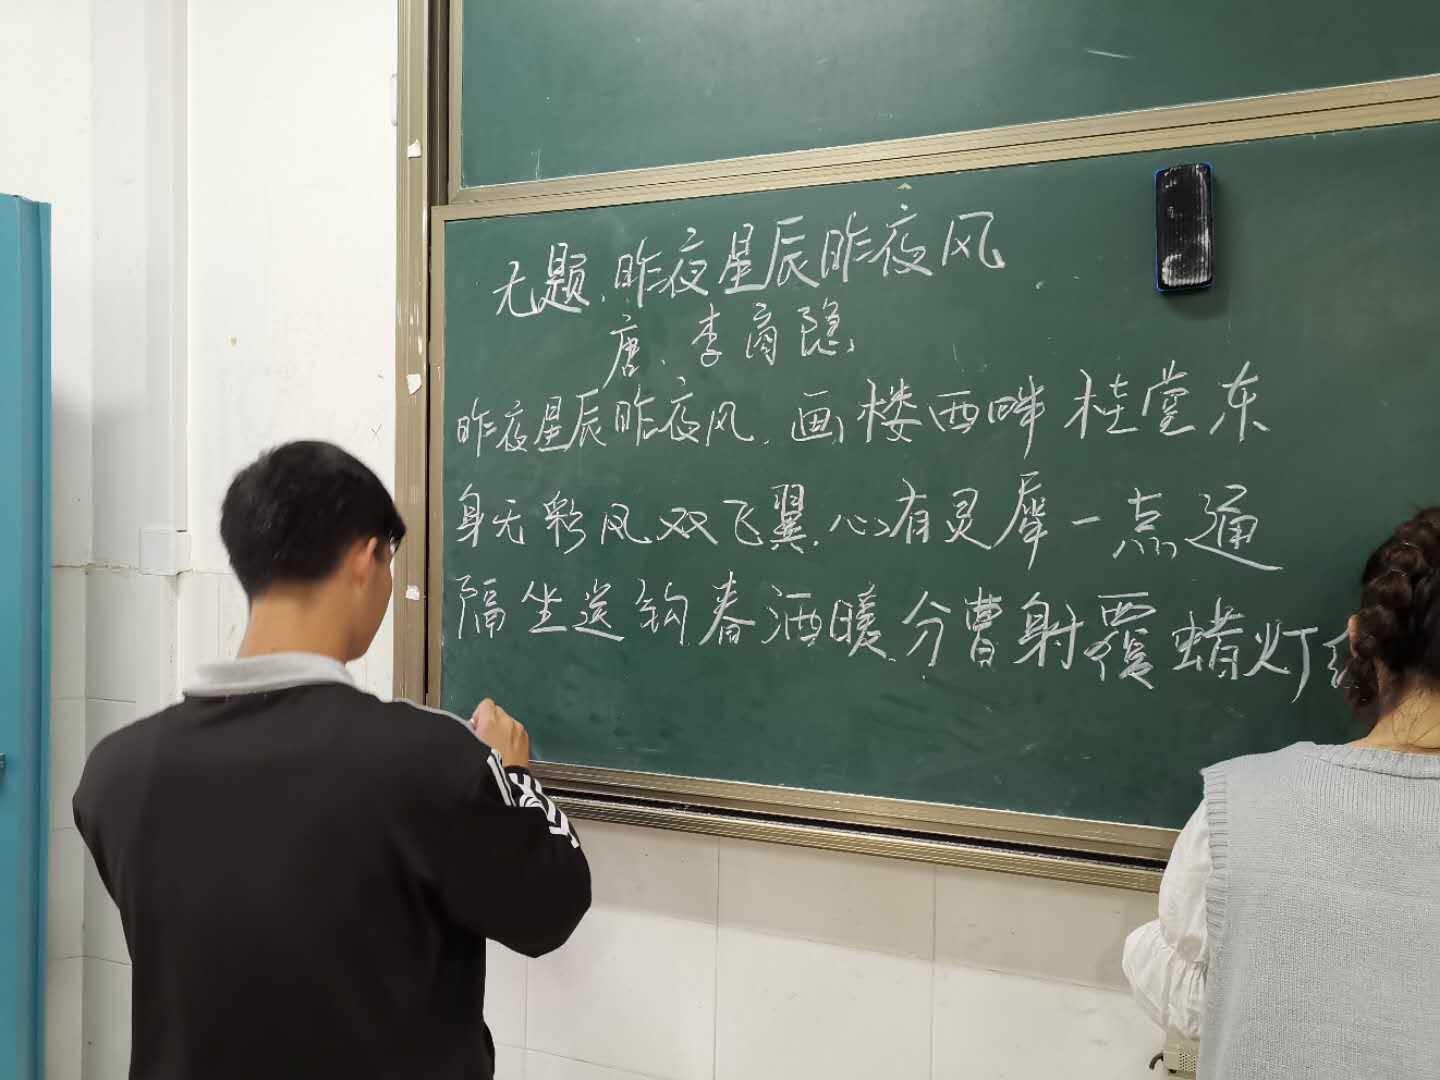 无题.昨夜星辰昨夜风
唐.李商隐
昨夜星辰昨夜风.画楼西畔桂堂东
身无彩风双飞翼.心有灵犀一点通
隔坐送钩春酒暖.分曹射覆蜡灯